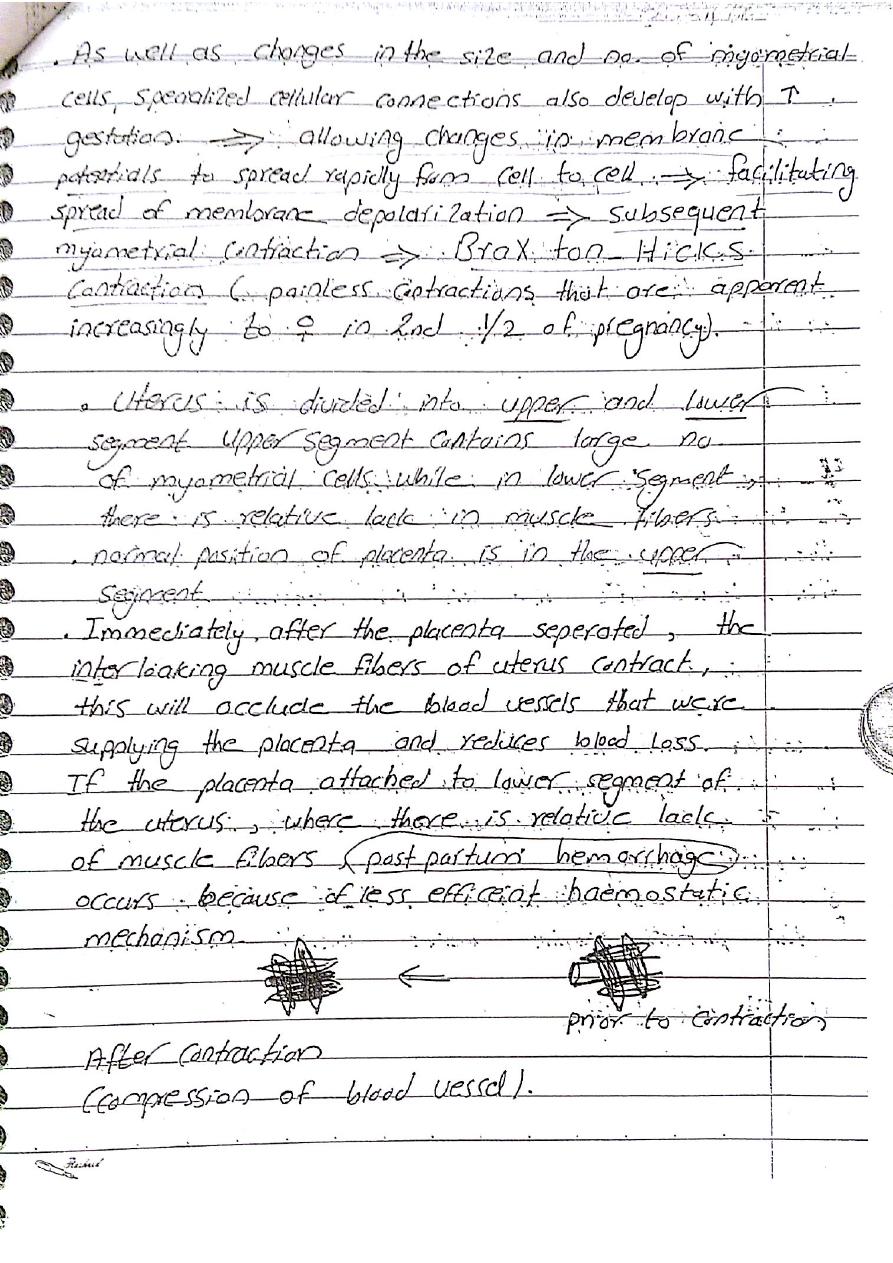 . As well as changes in the size and no. of myometrial
cells, specialized cellular connections also develop with ↑
gestation. ⇒ allowing changes in membrane
potentials to spread rapidly from cell to cell ⇒ facilitating
spread of membrane depolarization ⇒ subsequent
myometrial contraction ⇒ Braxton-Hicks
Contraction ( painless contractions that are apparent
increasingly to ♀ in 2nd 1/2 of pregnancy).
. Uterus is divided into upper and lower
segment upper segment contains large no
of myometrial cells while in lower segment
there is relative lack in muscle fibers
. normal position of placenta is in the upper
segment
. Immediately after the placenta seperated, the
interloaking muscle fibers of uterus contract,
this will occlude the blood vessels that were
supplying the placenta and reduces blood loss.
If the placenta attached to lower segment of
the uterus, where there is relative lack
of muscle fibers (post partum hemorrhage)
occurs because of less efficeint haemostatic
mechanism
←
prior to contraction
After contraction
(compression of blood vessel).